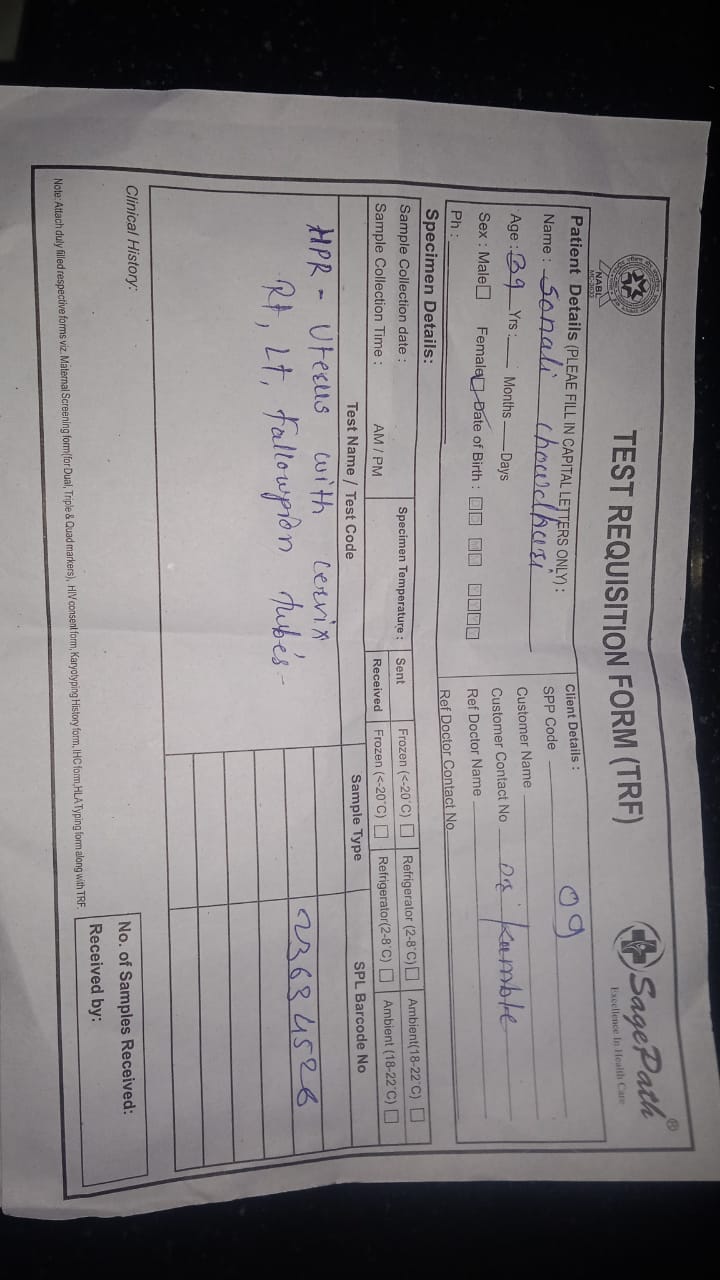 NABL
TEST REQUISITION FORM (TRF)
SagePath®
Excellence In Health Care
Patient Details (PLEAE FILL IN CAPITAL LETTERS ONLY) :
Name : Sonali chowdhari
Age : 39 Yrs : Months Days
Sex : Male Female Date of Birth :
Ph :
Client Details :
SPP Code 09
Customer Name
Customer Contact No Dr. Kamble
Ref Doctor Name
Ref Doctor Contact No
Specimen Details:
Sample Collection date :
Sample Collection Time : AM / PM
Specimen Temperature :
Sent Frozen (<-20°C) Refrigerator (2-8°C) Ambient(18-22°C)
Received Frozen (<-20°C) Refrigerator(2-8°C) Ambient (18-22°C)
Test Name / Test Code Sample Type SPL Barcode No
HPR - Uterus with cervix
Rt, Lt, fallowpion tubes - 23634526
Clinical History:
No. of Samples Received:
Received by:
Note: Attach duly filled respective forms viz. Maternal Screening form (for Dual, Triple & Quad markers), HIV consent form, Karyotyping History form, IHC form, HLA Typing form along with TRF.